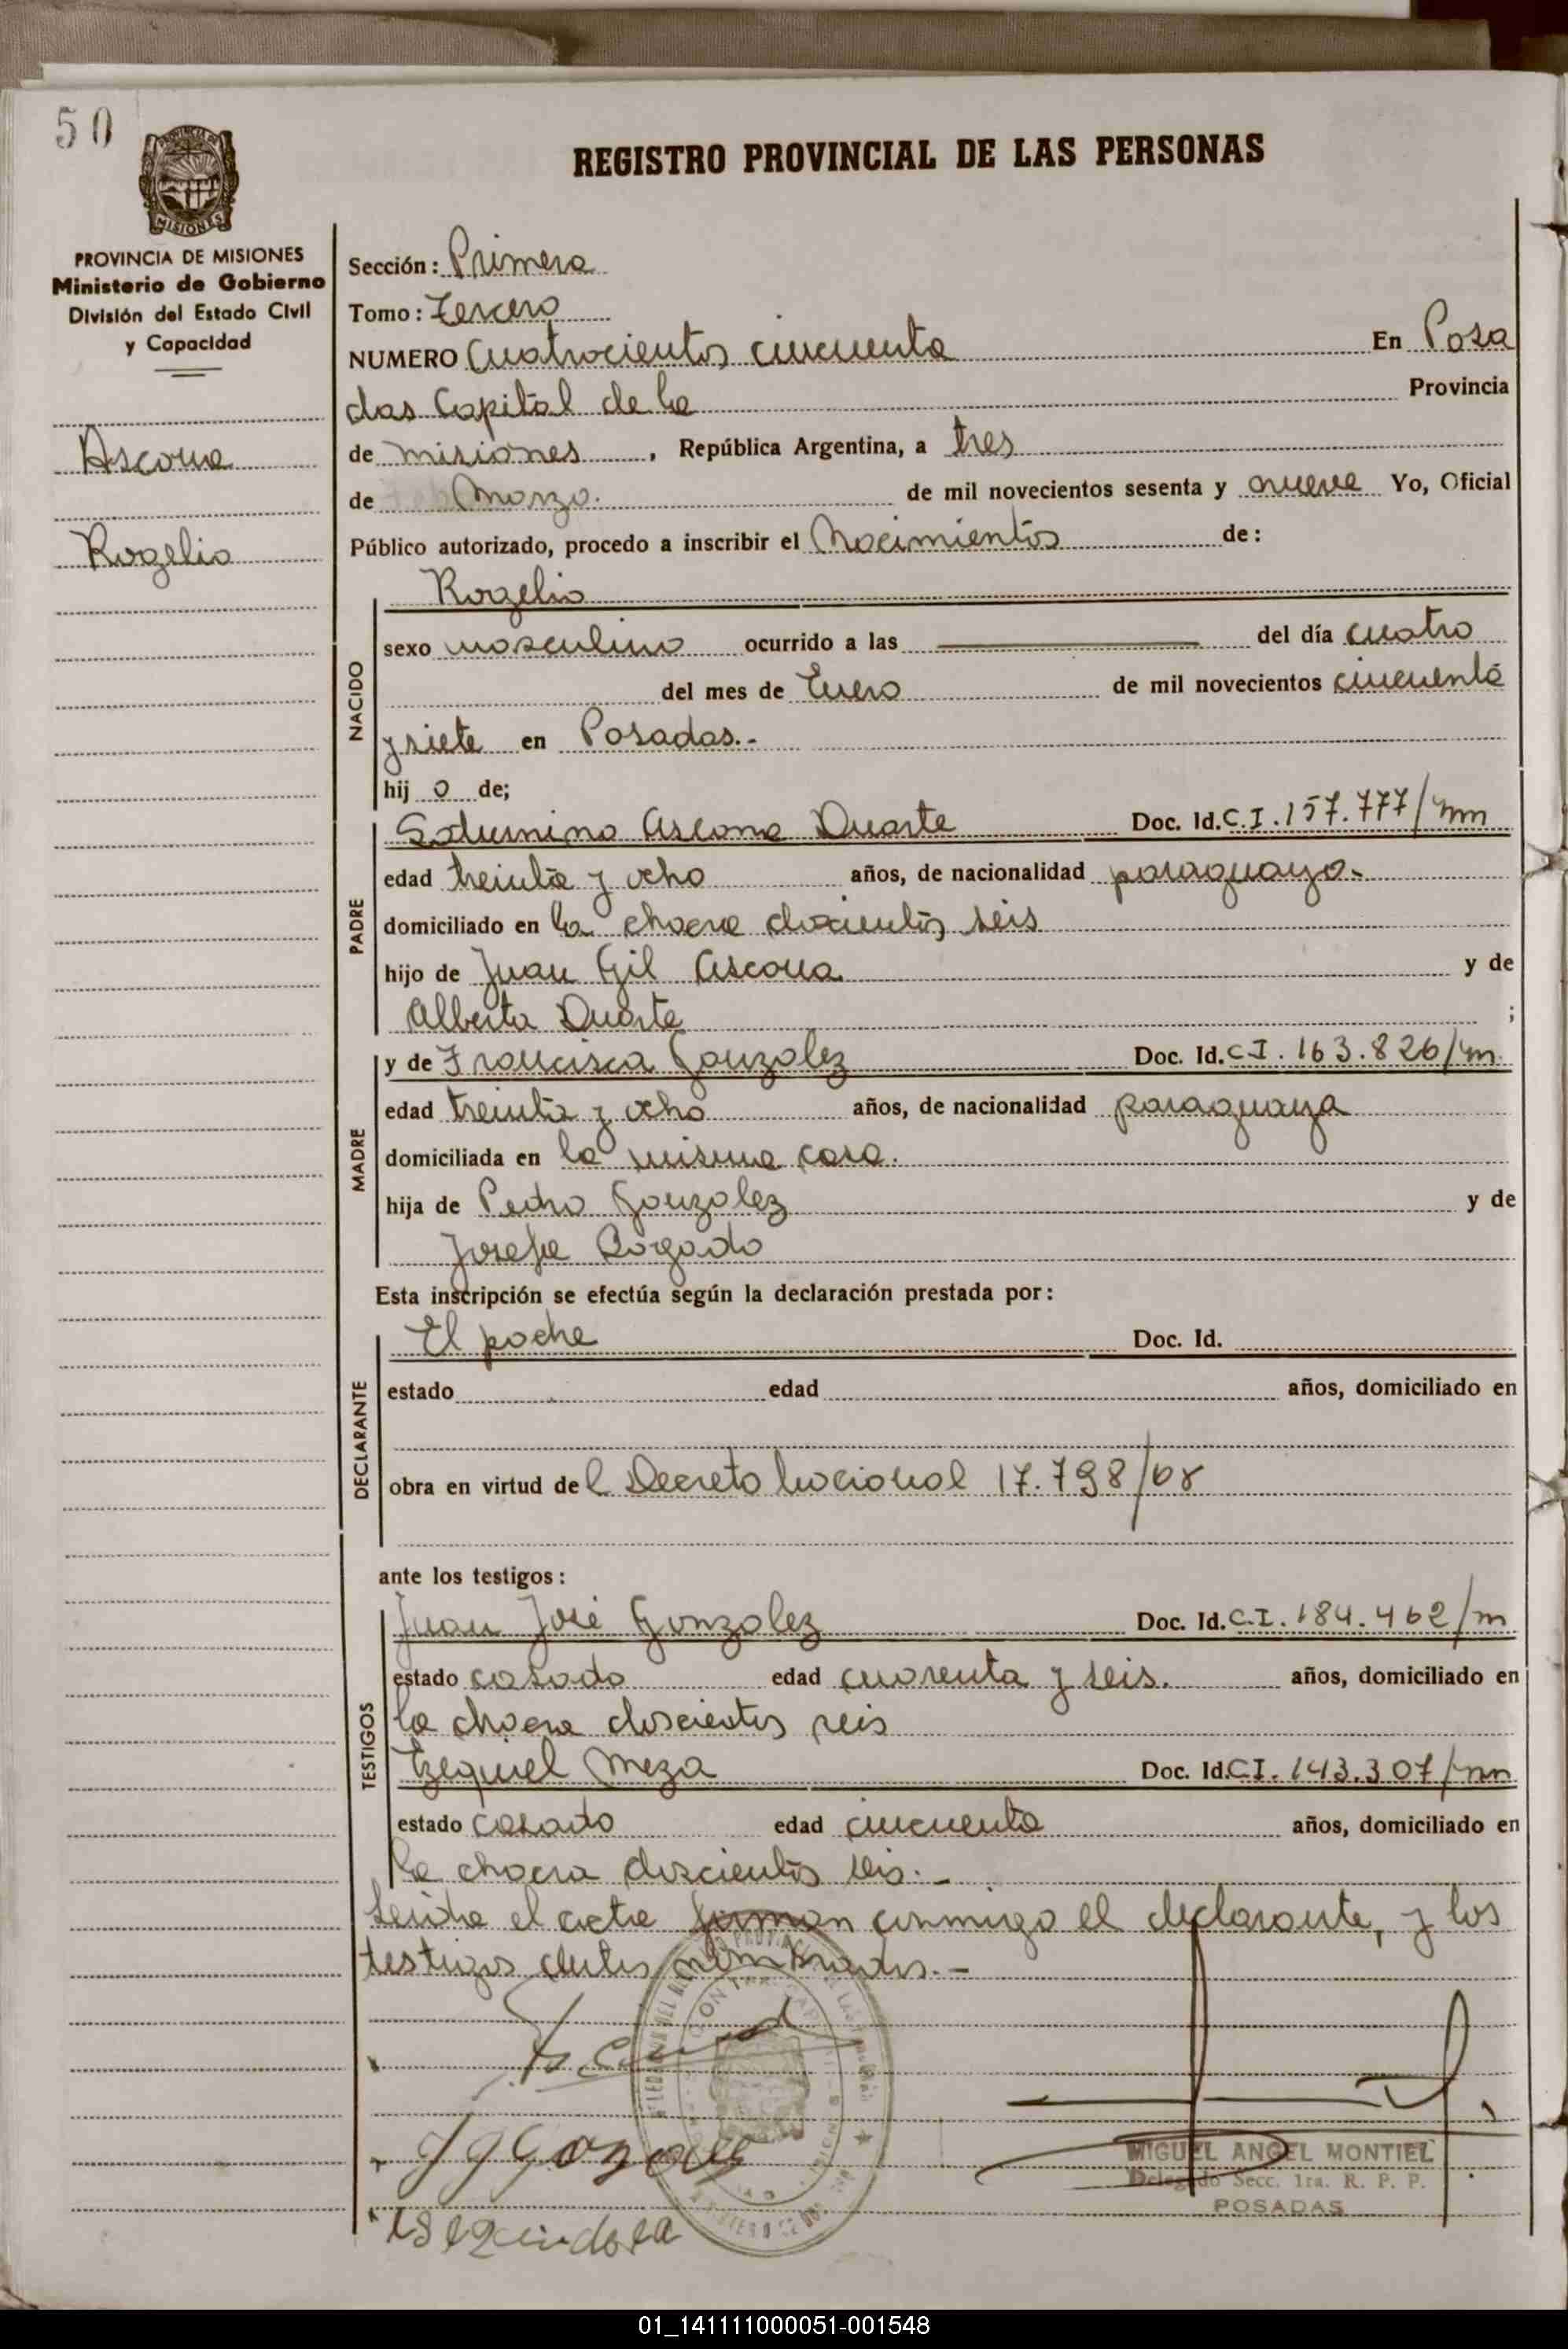 50
REGISTRO PROVINCIAL DE LAS PERSONAS
PROVINCIA DE MISIONES
Ministerio de Gobierno
División del Estado Civil
y Capacidad
Ascona
Rogelio
Sección: Primera
Tomo: Tercero
NUMERO Cuatrocientos cincuenta En Posa
das Capital de la Provincia
de misiones, República Argentina, a tres
de Marzo. de mil novecientos sesenta y nueve Yo, Oficial
Público autorizado, procedo a inscribir el Nacimientos de:
NACIDO
Rogelio
sexo masculino ocurrido a las ——— del día cuatro
del mes de Enero de mil novecientos cincuenta
y siete en Posadas.-
hij o de;
PADRE
Saturnino Ascona Duarte Doc. Id. C.I. 157.777/mm
edad treinta y ocho años, de nacionalidad paraguayo.
domiciliado en la chacra docientos seis
hijo de Juan Gil Ascona y de
Alberta Duarte ;
MADRE
y de Francisca Gonzalez Doc. Id. C.I. 163.826/m
edad treinta y ocho años, de nacionalidad paraguaya
domiciliada en la misma casa.
hija de Pedro Gonzalez y de
Josefa
Esta inscripción se efectúa según la declaración prestada por:
DECLARANTE
El padre Doc. Id.
estado edad años, domiciliado en
obra en virtud de l Decreto Nacional 17.798/68
ante los testigos:
TESTIGOS
Juan José Gonzalez Doc. Id. C.I. 184.462/m
estado casado edad cuarenta y seis. años, domiciliado en
la chacra doscientos seis
Ezequiel Meza Doc. Id. C.I. 143.307/mm
estado casado edad cincuenta años, domiciliado en
la chacra doscientos seis.-
Leida el acta firman conmigo el declarante, y los
testigos antes nombrados.-
MIGUEL ANGEL MONTIEL
Delegado Secc. 1ra. R. P. P.
POSADAS
01_141111000051-001548